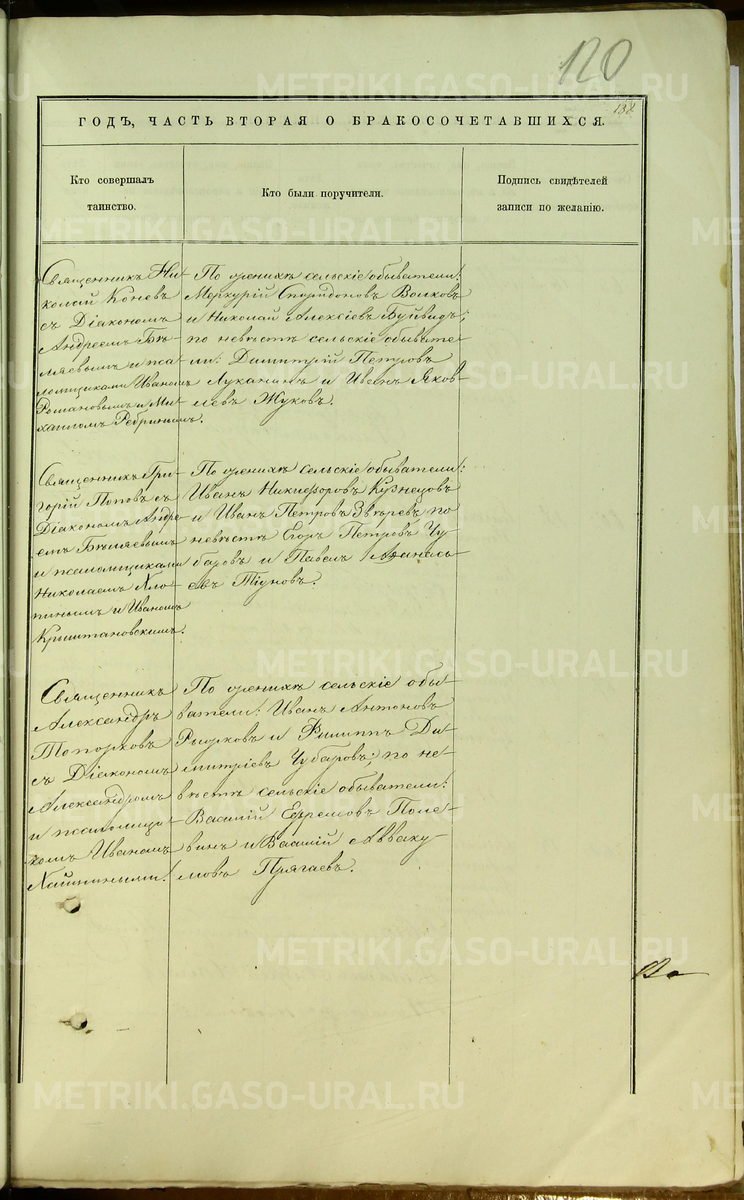 120
138
ГОДЪ, ЧАСТЬ ВТОРАЯ О БРАКОСОЧЕТАВШИХСЯ.
Кто совершалъ
таинство.
Кто были поручители.
Подпись свидѣтелей
записи по желанію.
Священникъ Ни-
колай Коневъ
съ Діакономъ
Андреемъ Бѣ-
ляевымъ и пса-
ломщиками Иваномъ
Романовымъ и Ми-
хаиломъ Ребринымъ.
По женихѣ сельскіе обыватели:
Меркурій Спиридоновъ Волковъ
и Николай Алексіевъ Буйвидъ;
по невѣстѣ сельскіе обывате-
ли: Димитрій Петровъ
Луканинъ и Ивенъ Яков-
левъ Жуковъ.
Священникъ Гри-
горій Поповъ съ
Діакономъ Андре-
емъ Бѣляевымъ
и псаломщиками
Николаемъ Хло-
пинымъ и Иваномъ
Криштановскимъ.
По женихѣ сельскіе обыватели:
Иванъ Никифоровъ Кузнецовъ
и Иванъ Петровъ Звѣревъ по
невѣстѣ Егоръ Петровъ Чу-
баровъ и Павелъ Аѳанась-
евъ Тіуновъ.
Священникъ
Александръ
Топорковъ
съ Діакономъ
Александромъ
и псаломщи-
комъ Иваномъ
Хайтиными.
По женихѣ сельскіе обы-
ватели: Иванъ Антоновъ
Рыжковъ и Филиппъ Ди-
митріевъ Чубаровъ; по не-
вѣстѣ сельскіе обыватели:
Василій Ефремовъ Поле-
винъ и Васлій Авваку-
мовъ Прягаевъ.
METRIKI.GASO-URAL.RU